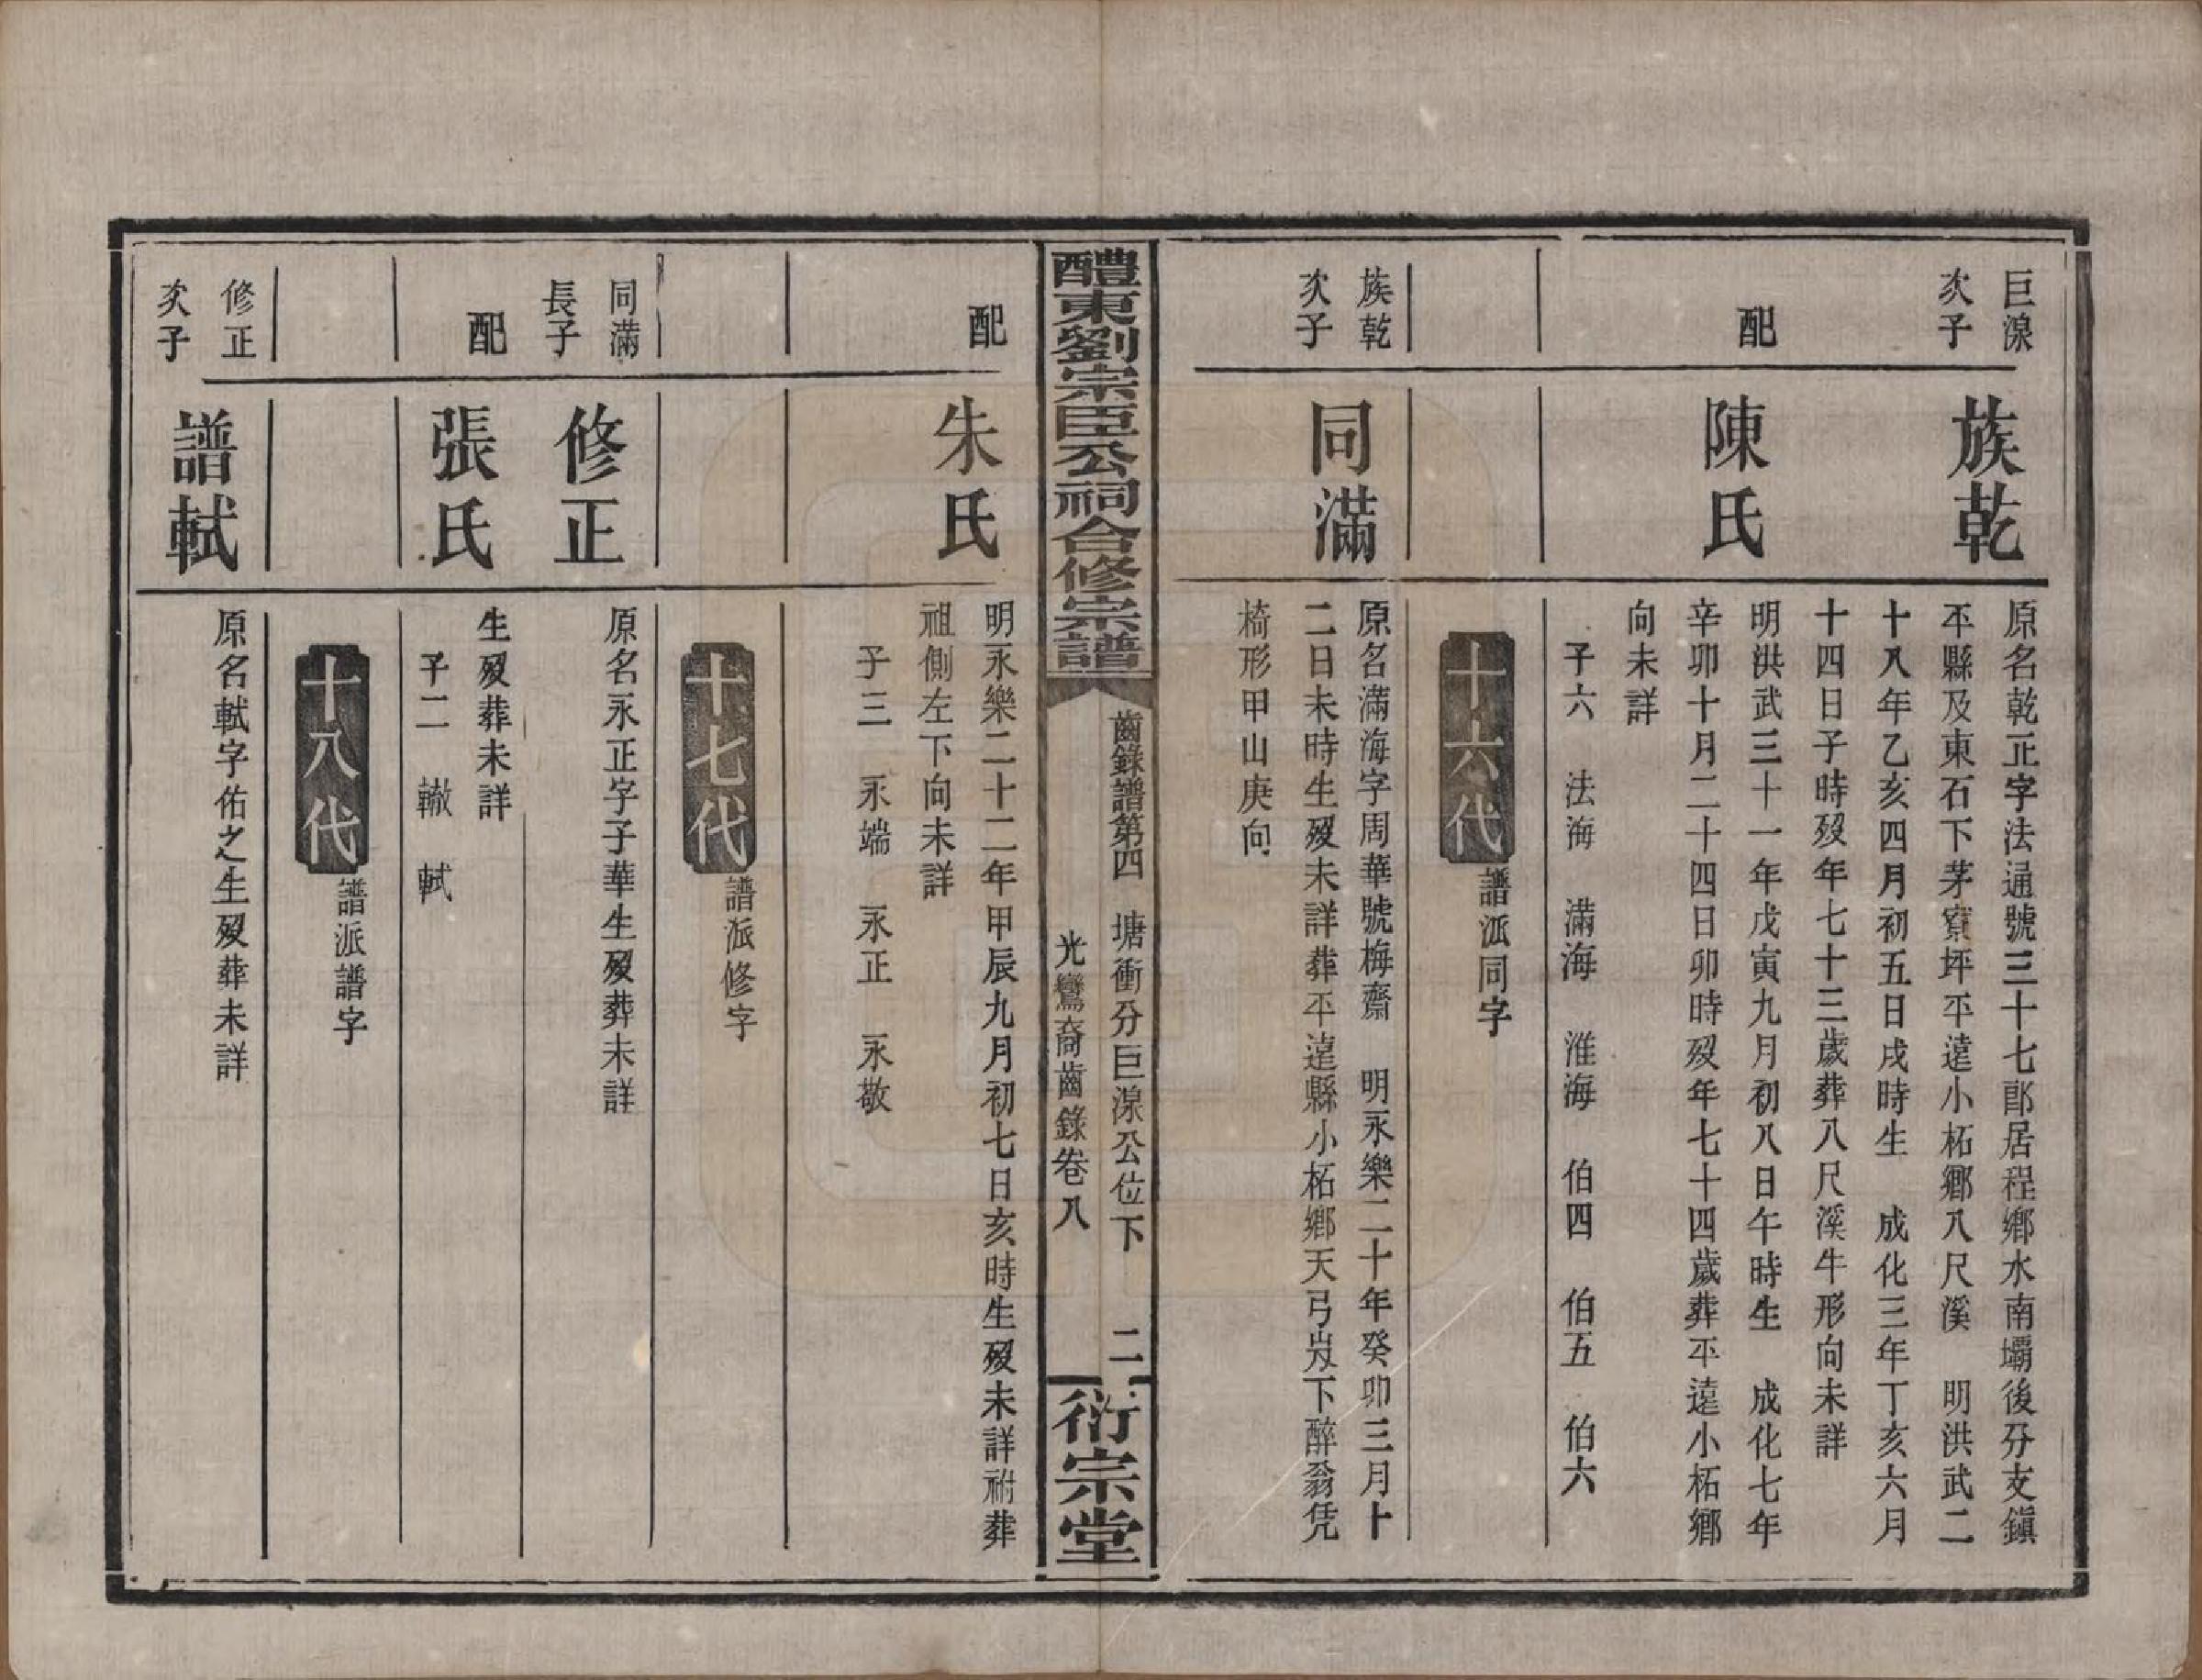 巨湶
次子
族乾
原名乾正字法通號三十七郎居程鄉水南壩後分支鎭
平縣及東石下茅寮坪平遠小柘鄉八尺溪　明洪武二
十八年乙亥四月初五日戌時生　成化三年丁亥六月
十四日子時歿年七十三歲葬八尺溪牛形向未詳
配
陳氏
明洪武三十一年戊寅九月初八日午時生　成化七年
辛卯十月二十四日卯時歿年七十四歲葬平遠小柘鄉
向未詳
子六　法海　滿海　淮海　伯四　伯五　伯六
十六代
譜派同字
族乾
次子
同滿
原名滿海字周華號梅齋　明永樂二十年癸卯三月十
二日未時生歿未詳葬平遠縣小柘鄉天弓岌下醉翁凭
椅形甲山庚向
醴東劉宗臣公祠合修宗譜
齒錄譜第四　塘衝分巨湶公位下　二
光鸞裔齒錄卷八
衍宗堂
配
朱氏
明永樂二十二年甲辰九月初七日亥時生歿未詳祔葬
祖側左下向未詳
子三　永端　永正　永敬
十七代
譜派修字
同滿
長子
修正
原名永正字子華生歿葬未詳
配
張氏
生歿葬未詳
子二　轍　軾
十八代
譜派譜字
修正
次子
譜軾
原名軾字佑之生歿葬未詳